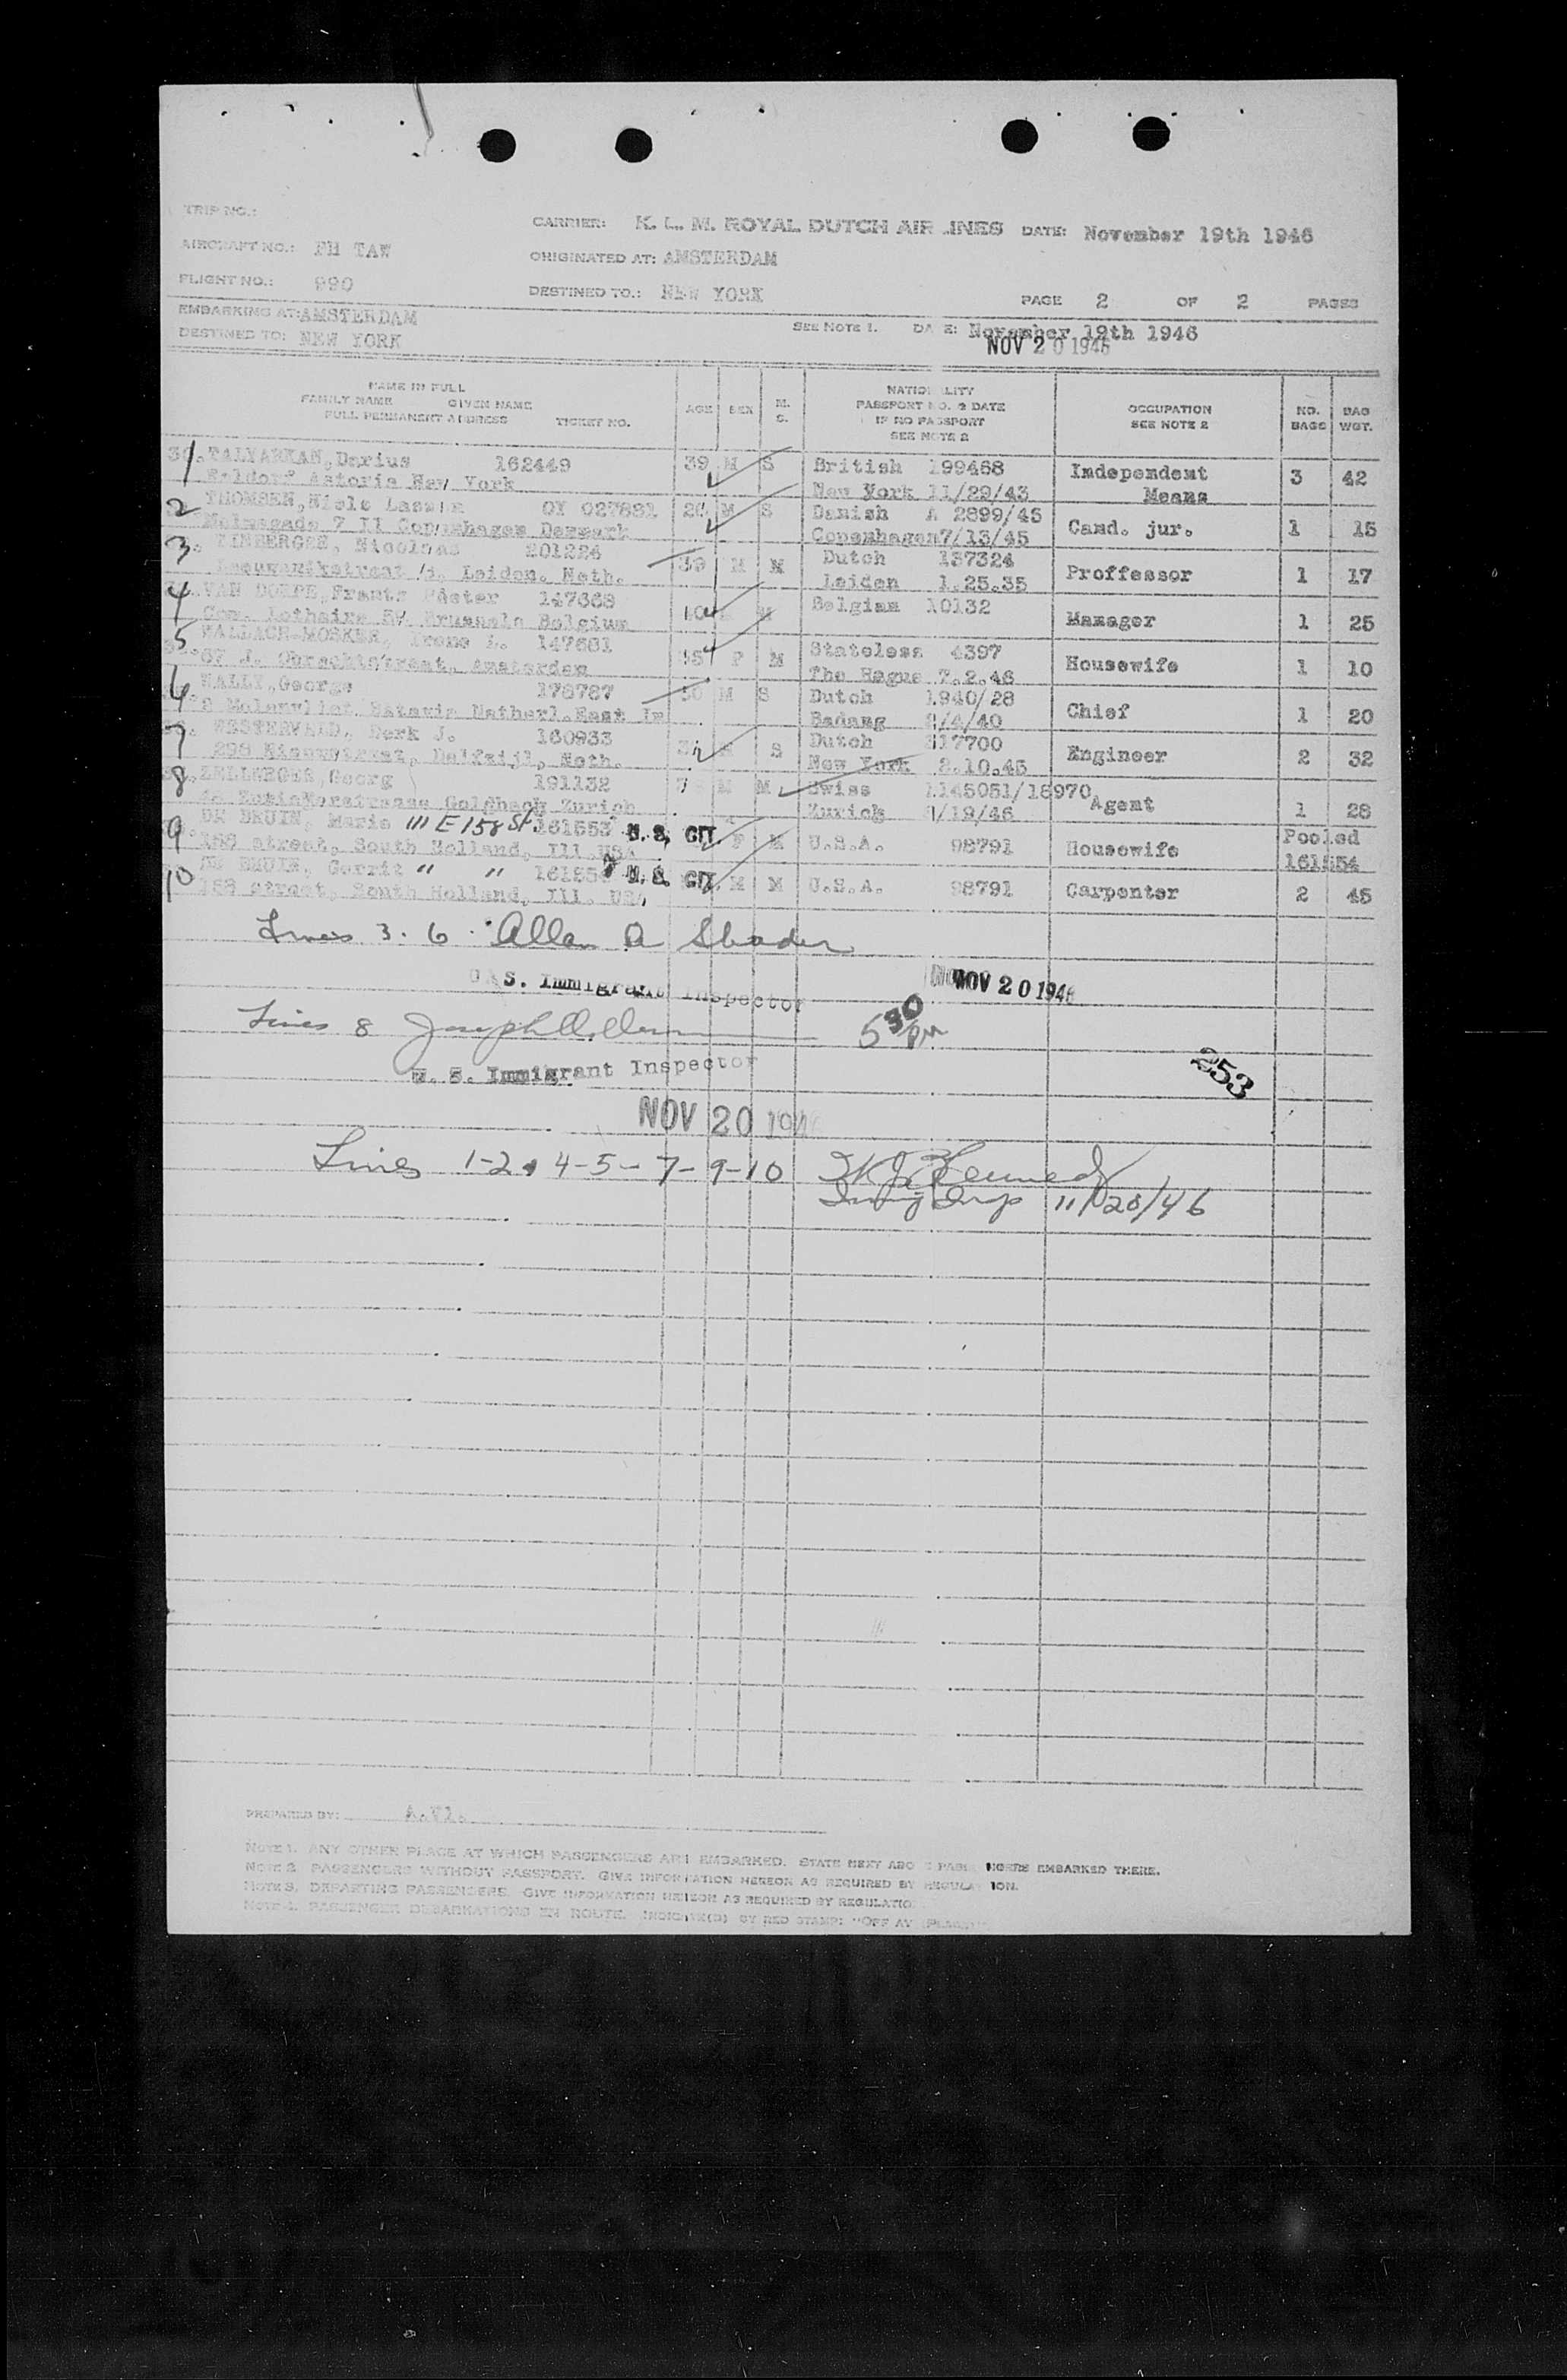 TRIP NO.:
CARRIER: K. L. M. ROYAL DUTCH AIR LINES DATE: November 19th 1946
AIRCRAFT NO.: PH TAW
ORIGINATED AT: AMSTERDAM
FLIGHT NO.: 990
DESTINED TO.: NEW YORK
PAGE 2 OF 2 PAGES
EMBARKING AT: AMSTERDAM
SEE NOTE 1. DATE: November 19th 1946
DESTINED TO: NEW YORK
NOV 20 1946
NAME IN FULL
FAMILY NAME GIVEN NAME
FULL PERMANENT ADDRESS TICKET NO.
AGE SEX M. S.
NATIONALITY
PASSPORT NO. & DATE
IF NO PASSPORT
SEE NOTE 2
OCCUPATION
SEE NOTE 2
NO. BAGS
BAG WGT.
1 TALYARKAN, Darius 162449 39 M S British 199468 Independent 3 42
Waldorf Astoria New York New York 11/29/43 Means
2 THOMSEN, Niels Lassen OY 027881 M S Danish A 2899/45 Cand. jur. 1 15
7 II Copenhagen Denmark Copenhagen 7/13/45
3. TINBERGEN, Nicolaas 201226 39 M M Dutch 137324 Proffessor 1 17
Leiden. Neth. Leiden 1.25.35
4 VAN Frants 147668 M Belgian 10132 Manager 1 25
Com. Lothaire Brussels Belgium
5 WALLACH-MOSKER, Irene L. 147681 F M Stateless 4397 Housewife 1 10
67 J. Obrechtstraat, Amsterdam The Hague 7.2.46
6 WALLY, George 178787 30 M S Dutch 1940/28 Chief 1 20
8 Molenvliet Batavia Netherl. East In Padang 8/4/40
7 WESTERVELD, Derk J. 160933 M S Dutch 317700 Engineer 2 32
Delfzijl, Neth. New York 2.10.45
8 ZELLWEGER, Georg 191132 M M Swiss 1145051/18970 Agent 1 28
Zurich Zurich 9/19/46
9 DE BRUIN, Marie 111 E 158 St. 161553 U.S. CIT. F M U.S.A. 98791 Housewife Pooled
158 street, South Holland, Ill. USA 161554
10 DE BRUIN, Gerrit " " U.S. CIT. M M U.S.A. 98791 Carpenter 2 45
158 street, South Holland, Ill. USA
Lines 3. 6. Allan A Shader
U. S. Immigrant Inspector NOV 20 1946
Lines 8 Joseph
5 30 PM
U. S. Immigrant Inspector
253
NOV 20 194
Lines 1-2-4-5-7-9-10 Kennedy
Immig Insp 11/20/46
PREPARED BY: A.Vl.
NOTE 1. ANY OTHER PLACE AT WHICH PASSENGERS ARE EMBARKED. STATE NEXT ABOVE PASSENGERS EMBARKED THERE.
NOTE 2. PASSENGERS WITHOUT PASSPORT. GIVE INFORMATION HEREON AS REQUIRED BY REGULATION.
NOTE 3. DEPARTING PASSENGERS. GIVE INFORMATION HEREON AS REQUIRED BY REGULATIO
NOTE 4. PASSENGER DEBARKATIONS EN ROUTE. INDICATE(D) BY RED STAMP: "OFF AT (PLACE)"